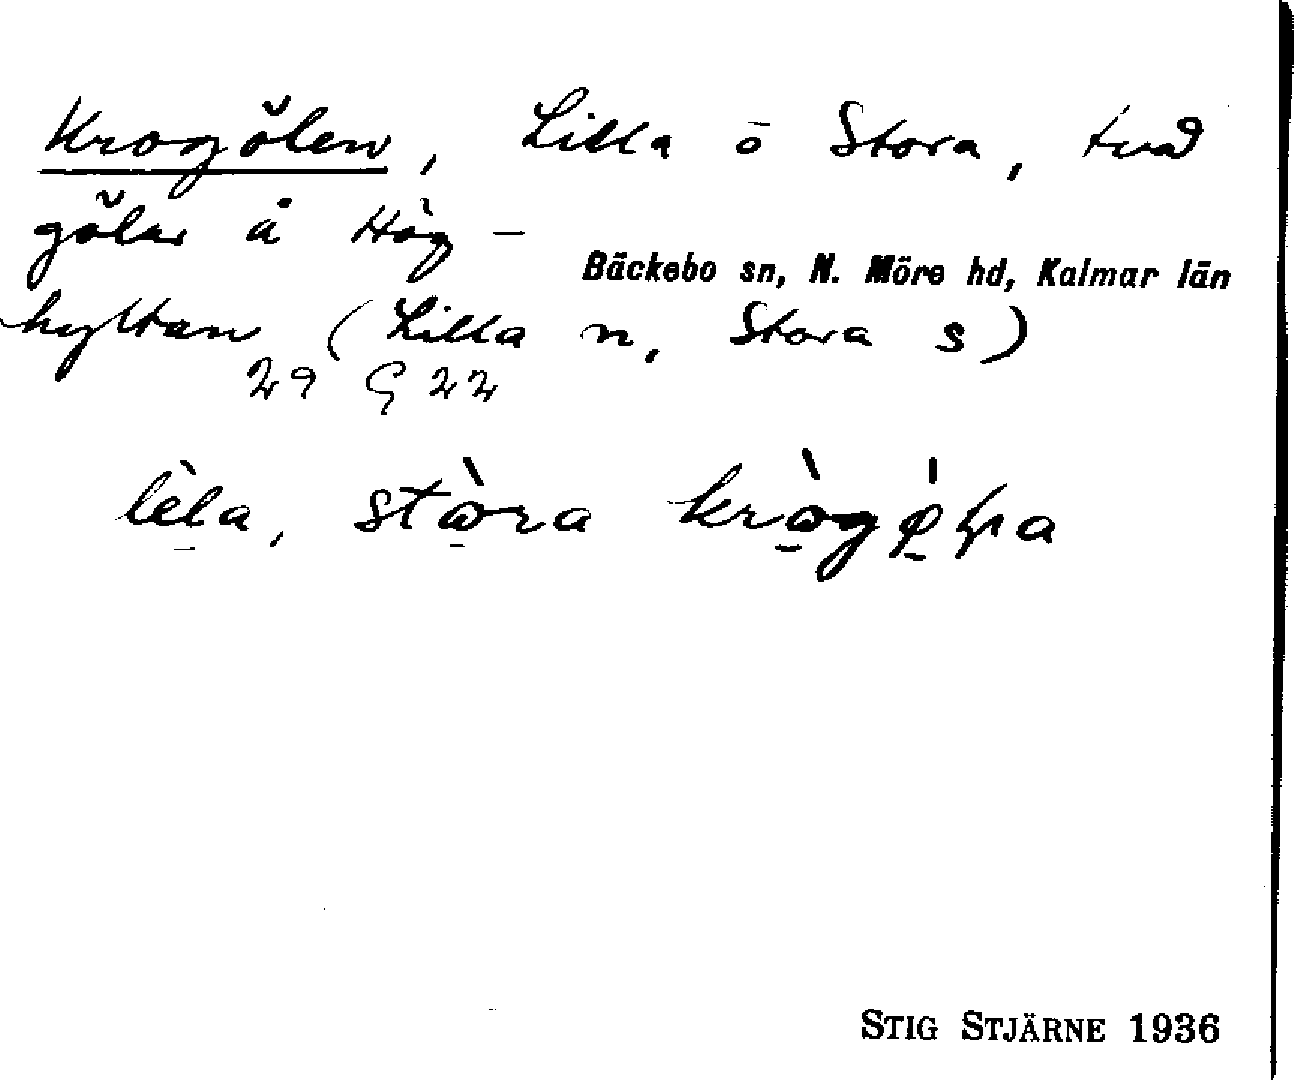 Krogölen, Lilla o Stora, två
gölar å Hög-
Bäckebo sn, N. Möre hd, Kalmar län
hyttan (Lilla n, Stora s)
29 G 22
lèla, stòra
STIG STJÄRNE 1936